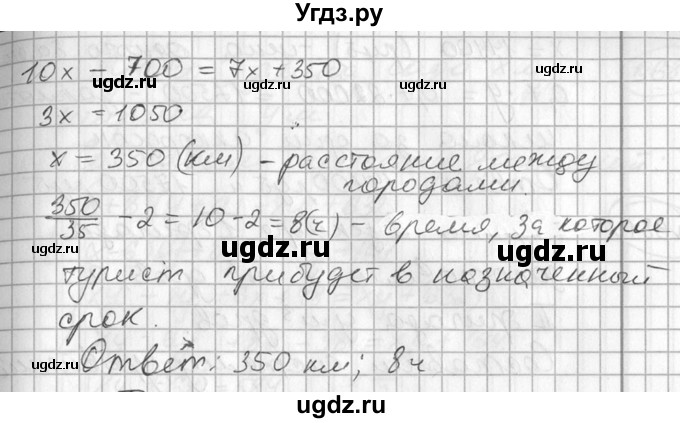 Угдз.ру
10x - 700 = 7x + 350
ugdz.ru ugdz.ru ugdz.ru
3x = 1050
x = 350 (км) - расстояние между
городами.
350/35 - 2 = 10 - 2 = 8(ч) - время, за которое
ugdz.ru ugdz.ru
турист прибудет в назначенный
срок.
ugdz.ru ugdz.ru ugdz.ru
Ответ: 350 км; 8ч
ugdz.ru